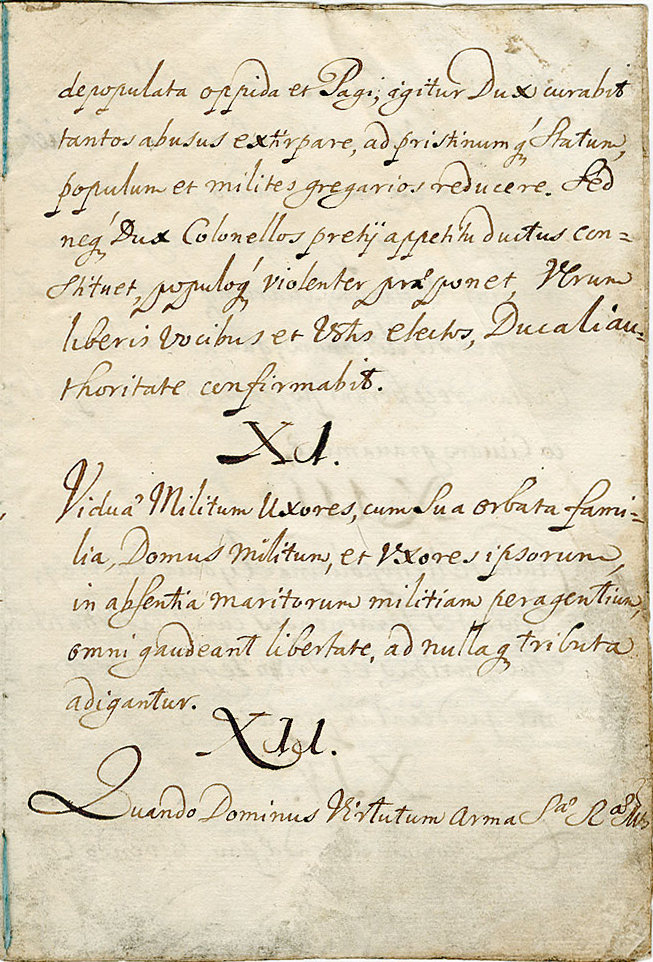 depopulata oppida et Pagi; igitur Dux curabit
tantos abusus extirpare, ad pristinumq́ Statum,
populum et milites gregarios reducere. Sed
neq́ Dux Colonellos pretij appetitu ductus con=
stituet, populoq́ violenter præponet, Verum
liberis vocibus et Votis electos, Ducali au=
thoritate confirmabit.
XI.
Viduæ Militum Uxores, cum sua orbata fami=
lia, Domus Militum, et Uxores ipsorum,
in absentia maritorum militiam peragentium,
omni gaudeant libertate, ad nullaq́ tributa
adigantur.
XII.
Quando Dominus Virtutum Arma Sae Rae